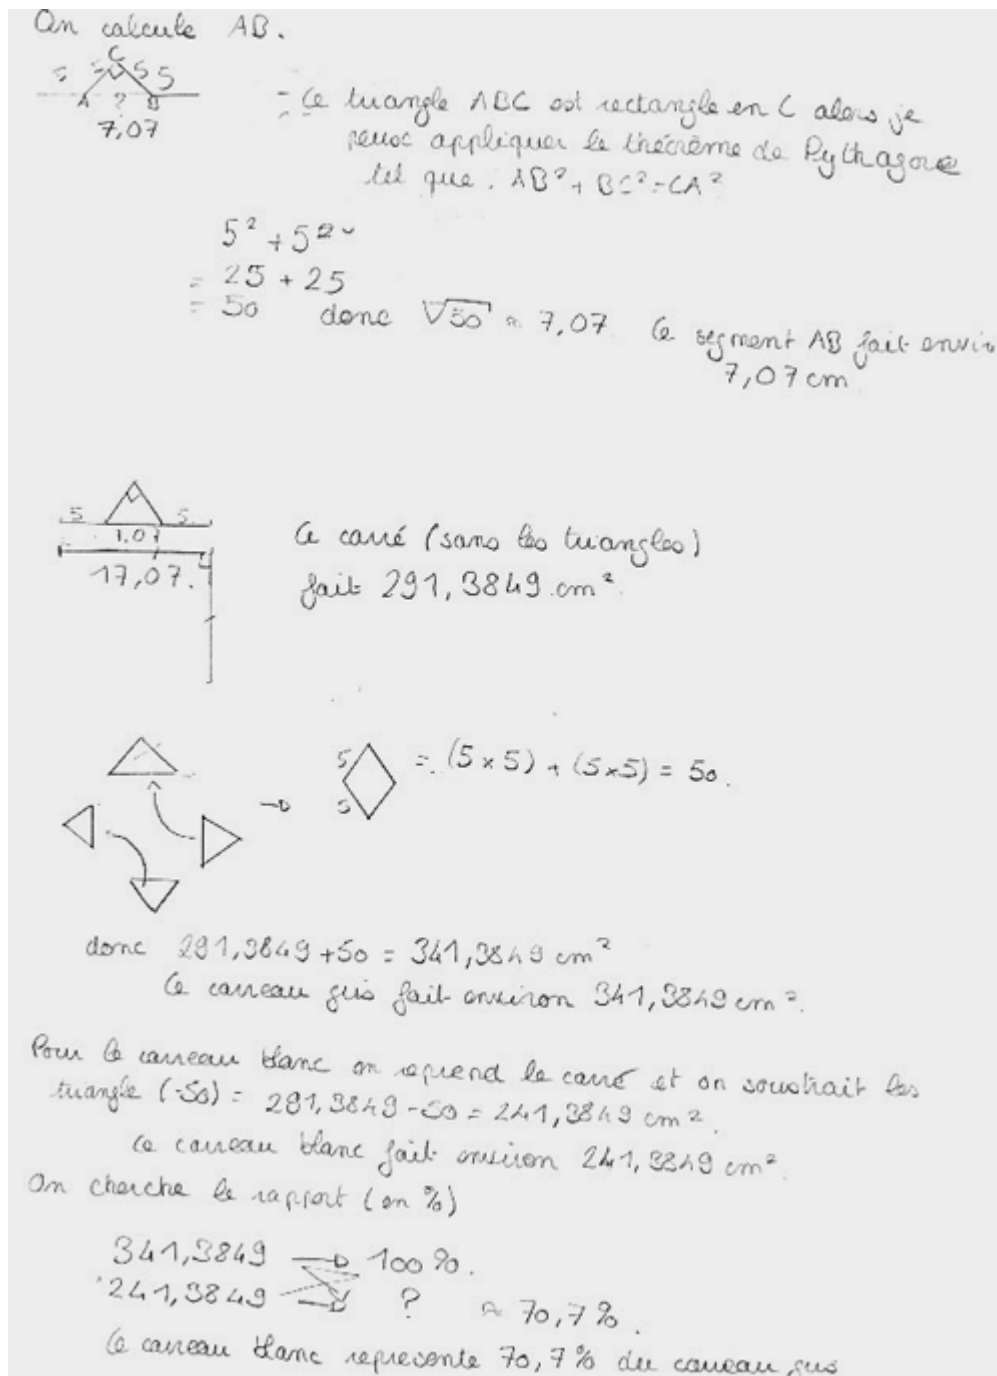 On calcule AB.
C
5 5 5 5
A ? B
7,07
= Le triangle ABC est rectangle en C alors je
peux appliquer le théorème de Pythagore
tel que : AB² + BC² = CA²
5² + 5²
= 25 + 25
= 50 donc √50 ≈ 7,07. Le segment AB fait enviro
7,07 cm
5 5
7,07
17,07.
Le carré (sans les triangles)
fait 291,3849 cm².
5
5
= (5 × 5) + (5×5) = 50.
donc 291,3849 + 50 = 341,3849 cm²
Le carreau gris fait environ 341,3849 cm².
Pour le carreau blanc on reprend le carré et on soustrait les
triangle (-50) = 291,3849 - 50 = 241,3849 cm².
Le carreau blanc fait environ 241,3849 cm².
On cherche le rapport (en %)
341,3849 → 100 %.
241,3849 → ? ≈ 70,7 %.
Le carreau blanc représente 70,7 % du carreau gris